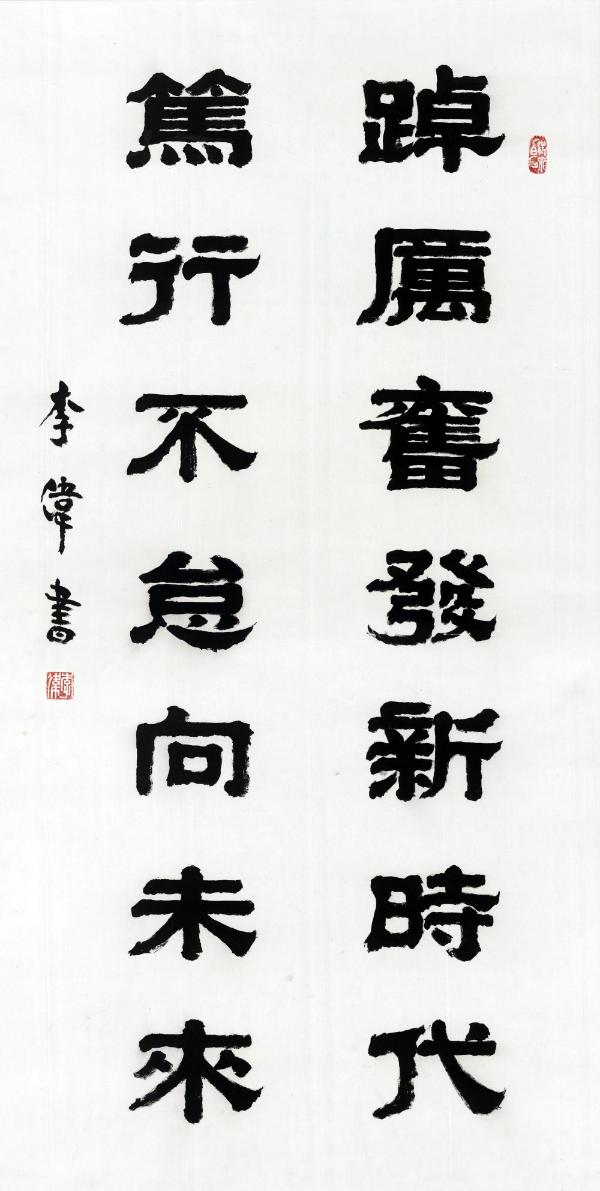 踔厲奮發新時代
篤行不怠向未來
李偉書
李偉